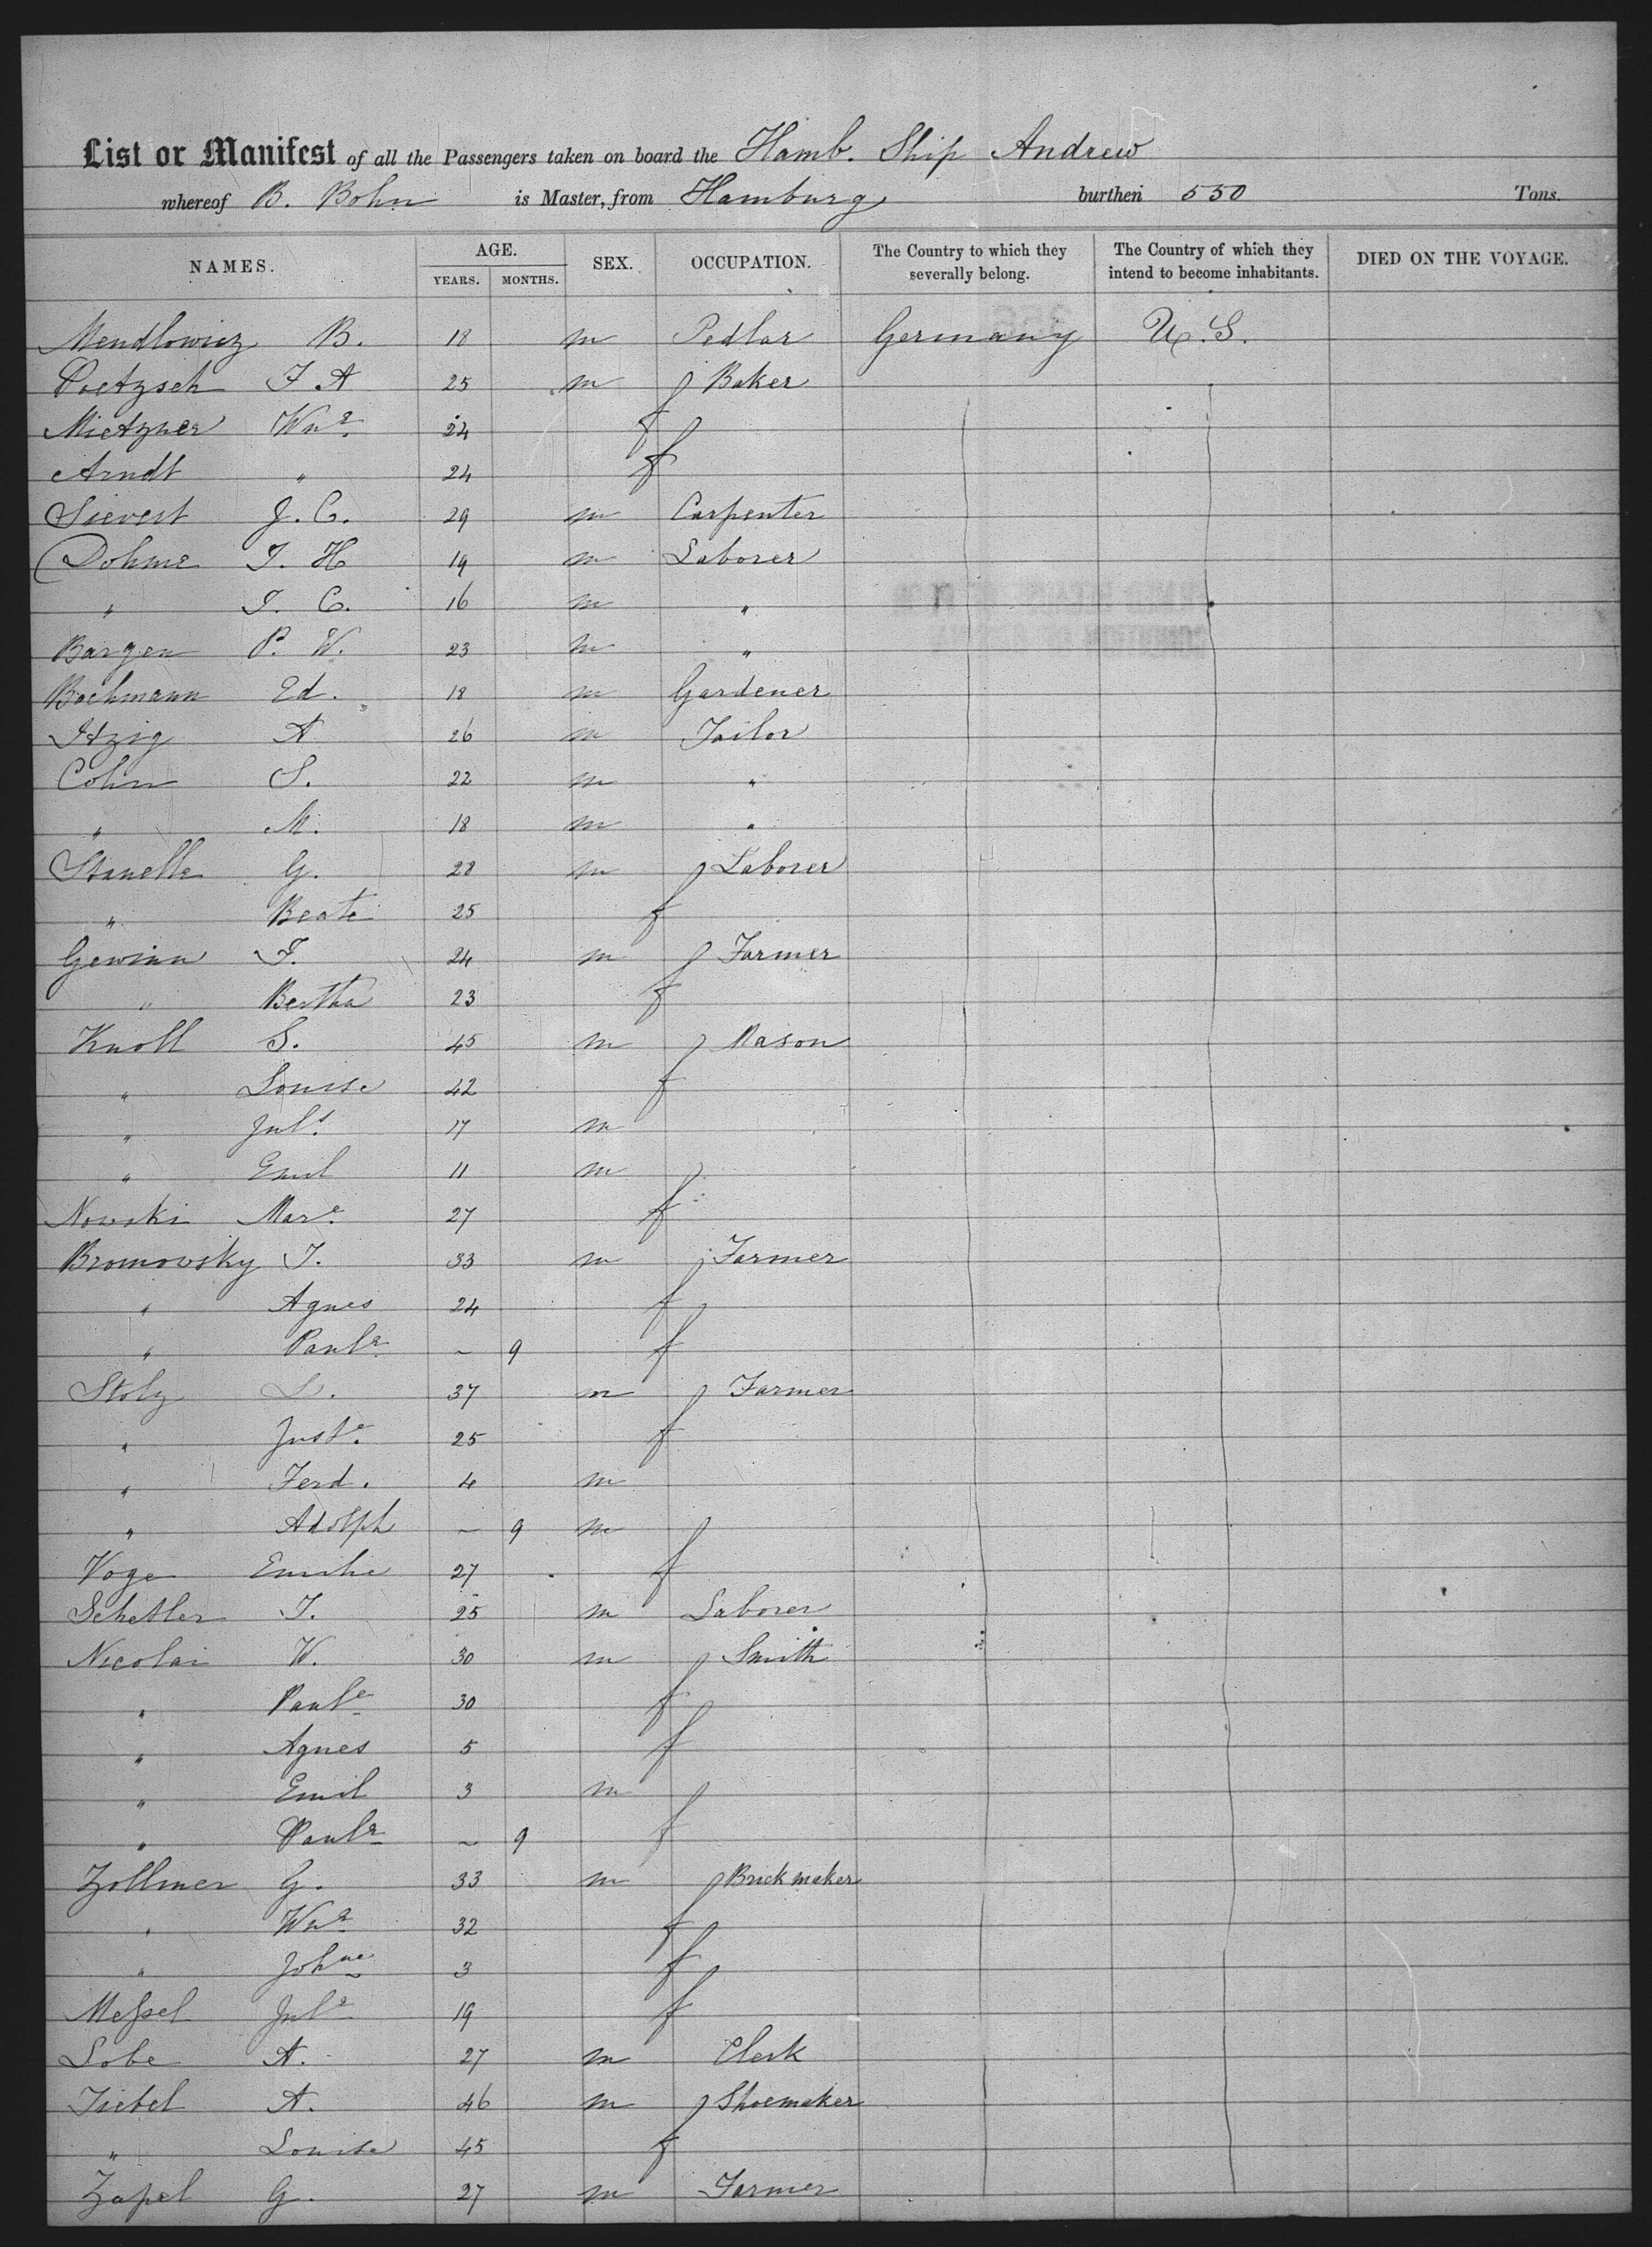 List or Manifest of all the Passengers taken on board the Hamb. Ship Andrew
whereof B. Bohn is Master, from Hamburg burthen 550 Tons.
NAMES. AGE. YEARS. MONTHS. SEX. OCCUPATION. The Country to which they severally belong. The Country of which they intend to become inhabitants. DIED ON THE VOYAGE.
Mendlowicz B. 18 m Pedlar Germany U.S.
Poetzsch F A 25 m Baker
Mietzner Wne. 24 f
Arndt " 24 f
Sievert J. C. 29 m Carpenter
Dohme J. H 19 m Laborer
" J. C. 16 m "
Bargen P. W. 23 m "
Bachmann Ed. 18 m Gardener
Itzig A 26 m Tailor
Cohn S. 22 m "
" M. 18 m "
Stanelle G. 28 m Laborer
" Beate 25 f
Gewinn F. 24 m Farmer
" Bertha 23 f
Knoll S. 45 m Mason
" Louise 42 f
" Juls. 17 m
" Emil 11 m
Nowski Mare. 27 f
Bromovsky J. 33 m Farmer
" Agnes 24 f
" Paule ~ 9 f
Stolz L. 37 m Farmer
" Juste. 25 f
" Ferd. 4 m
" Adolph ~ 9 m
Voge Emilie 27 f
Schetler J. 25 m Laborer
Nicolai W. 30 m Smith
" Paule 30 f
" Agnes 5 f
" Emil 3 m
" Paule ~ 9 f
Zollmer G. 33 m Brickmaker
" Wne 32 f
" Johne 3 f
Meſsel Jule 19 f
Lobe A. 27 m Clerk
Tiebel A. 46 m Shoemaker
" Louise 45 f
Zapel G. 27 m Farmer